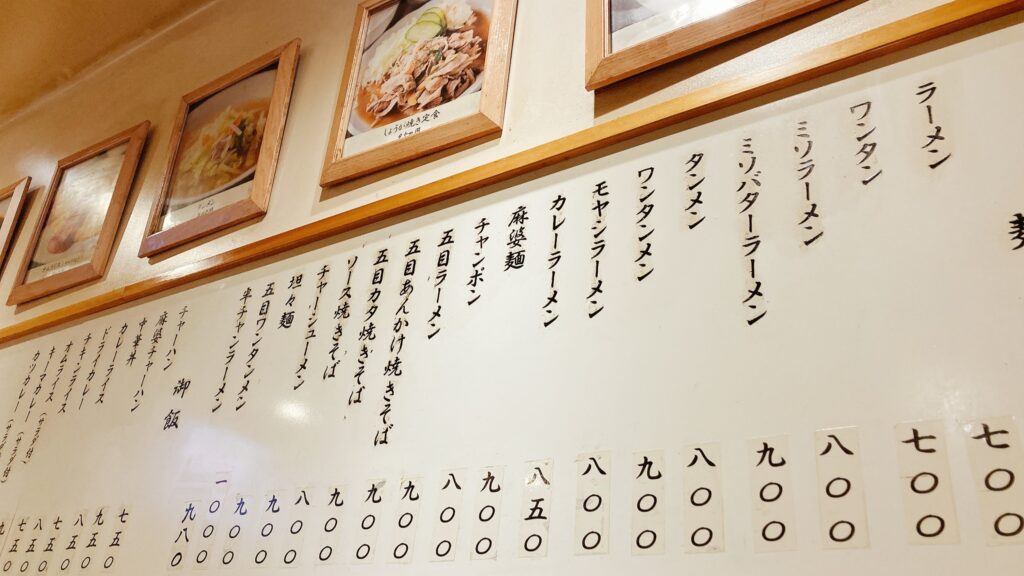 しょうが焼き定食
ラーメン
ワンタン
ミソラーメン
ミソバターラーメン
タンメン
ワンタンメン
モヤシラーメン
カレーラーメン
麻婆麺
チャンポン
五目ラーメン
五目あんかけ焼きそば
五目カタ焼きそば
ソース焼きそば
チャーシューメン
坦々麺
五目ワンタンメン
半チャンラーメン
御飯
チャーハン
麻婆チャーハン
中華丼
カレーライス
ドライカレー
チキンライス
オムライス
キーマカレー（サラダ付）
カツカレー（サラダ付）
七〇〇
七〇〇
八〇〇
九〇〇
八〇〇
九〇〇
八〇〇
八五〇
九〇〇
八〇〇
九〇〇
九〇〇
九〇〇
八〇〇
九〇〇
九〇〇
一〇〇〇
九八〇
七五〇
九五〇
八五〇
七五〇
八五〇
七五〇